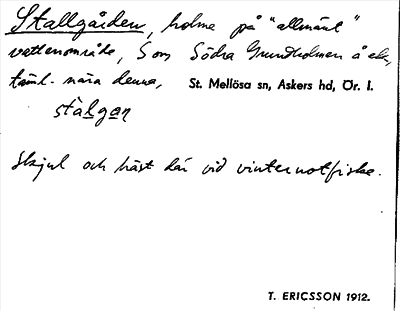 Stallgården, holme på "allmänt"
vattenområde, Som Södra Grundholmen å ek,
täml. nära denna, St. Mellösa sn, Askers hd, Ör. l.
stàlgan
Skjul och häst där vid vinternotfiske.
T. ERICSSON 1912.